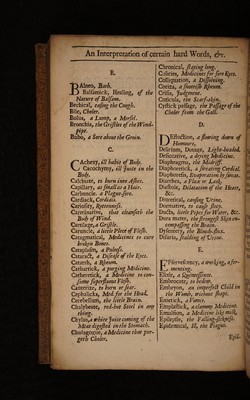 An Interpretation of certain hard Words, &c.
B.
Balneo, Bath.
Balsamick, Healing, of the
Nature of Balsam.
Bechical, easing the Cough.
Bile, Choler.
Bolus, a Lump, a Morsel.
Bronchia, the Gristles of the Wind-
pipe.
Bubo, a Sore about the Groin.
C.
Cachexy, ill habit of Body.
Cacochymy, ill Juice in the
Body.
Calcinate, to burn into Ashes.
Capillary, as small as a Hair.
Carbuncle. a Plague-sore.
Cardiack, Cordials.
Cariosity, Rottenness.
Carminative, that cleanseth the
Body of Wind.
Cartilage, a Gristle.
Caruncle, a little Piece of Flesh.
Catagmatical, Medicines to cure
broken Bones.
Cataplasm, a Pultess.
Cataract, a Disease of the Eyes.
Catarrh, a Rheum.
Cathartick, a purging Medicine.
Catheretick, a Medicine to con-
sume superfluous Flesh.
Cauterize, to burn or sear.
Cephalicks, Med. for the Head.
Cerebellum, the little Brain.
Chalybeate, red-hot Steel in any
thing.
Chylus, a white Juice coming of the
Meat digested in the Stomach.
Cholagogon, a Medicine that pur-
geth Choler.
Chronical, staying long.
Coliries, Medicines for sore Eyes.
Colliquation, a Dissolving.
Coriza, a snottish Rheum.
Crisis, Judgment.
Cuticula, the Scarf-skin.
Cystick passage, the Passage of the
Choler from the Gall.
D.
Defluction, a flowing down of
Humours.
Delirium, Dotage, Light-headed.
Desiccative, a drying Medicine.
Diaphragma, the Midriff.
Diaphoretick, a sweating Cordial.
Diaphoresis, Evaporation by sweat.
Diarrhœa, a Flux of the Belly.
Diastole, Delatation of the Heart,
&c.
Diuretical, causing Urine.
Dormitive, to cause sleep.
Ducts, little Pipes for Water, &c.
Dura mater, the strongest Skin en-
compassing the Brain.
Dysentery, the Bloody-flux.
Dysuria, scalding of Urine.
E.
Effervescency, a working, a fer-
menting.
Elixir, a Quintessence.
Embrocate, to bedew.
Embryon, an imperfect Child in
the Womb, without shape.
Emetick, a Vomit.
Emplastick, a clammy Medicine.
Emulsion, a Medicine like milk.
Epilepsie, the Falling-sickness.
Epidemical, Ill, the Plague.